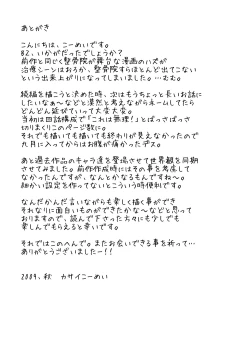 あとがき
こんにちは、こーめいです。
B2、いかがだったでしょうか?
前作と同じく整骨院が舞台な漫画のハズが
治療シーンはおろか、整骨院すらほとんど出てこない
という出来上がりになってしまいました。…むむ。
続編を描こうと決めた時、次はもうちょっと長いお話に
したいなぁ〜などと漠然と考えながらネームしてたら
どんどん延びていって大変大変。
当初は四話構成で「これは無理!」とばっさばっさ
切りまくりこのページ数に。
それでも描いても描いても終わりが見えなかったので
九月に入ってからはお腹が痛かったデス。
あと過去作品のキャラ達を登場させて世界観を同期
させてみました。前作作成時にはその事を考慮して
なかったんですが、なんとかなるもんですね〜。
細かい設定を作ってないとこういう時便利です。
なんだかんだ言いながらも楽しく描く事ができ
それなりに面白いものができたかな〜などと思って
おりますので、読んで下さった方々にも少しでも
楽しんでもらえると幸いです。
それではこのへんで。またお会いできる事を祈って…
ありがとうございましたー!!
2009、秋　カサイこーめい